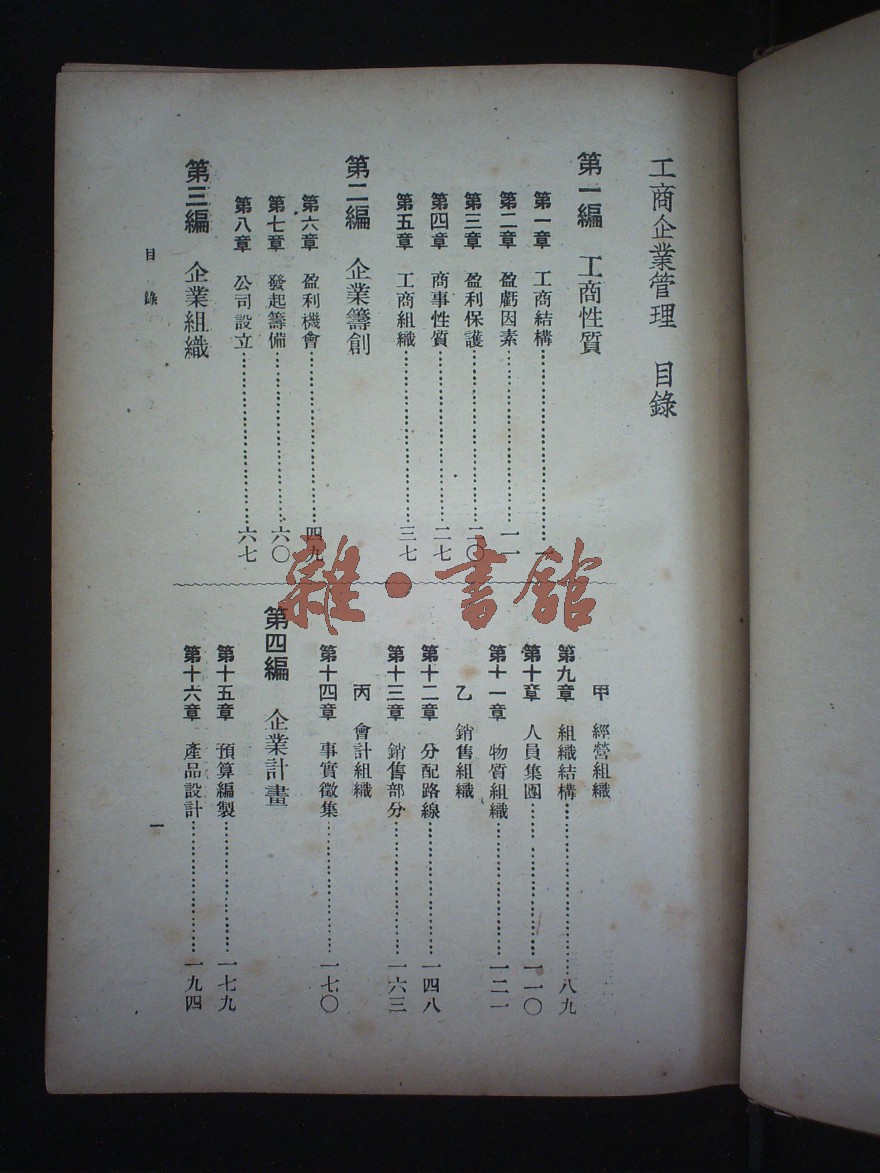 工商企業管理　目錄
第一編　工商性質
第一章　工商結構……一
第二章　盈虧因素……一一
第三章　盈利保護……二〇
第四章　商事性質……二七
第五章　工商組織……三七
第二編　企業籌創
第六章　盈利機會……四九
第七章　發起籌備……六〇
第八章　公司設立……六七
第三編　企業組織
甲　經營組織
第九章　組織結構……八九
第十章　人員集團……一一〇
第十一章　物質組織……一二一
乙　銷售組織
第十二章　分配路線……一四八
第十三章　銷售部分……一六三
丙　會計組織
第十四章　事實徵集……一七〇
第四編　企業計畫
第十五章　預算編製……一七九
第十六章　產品設計……一九四
目錄
一
雜·書館